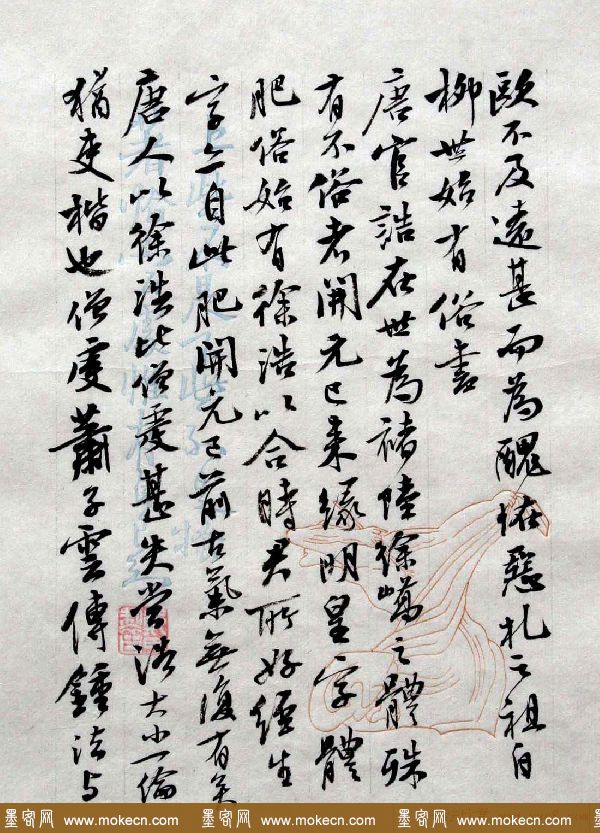 歐不及遠甚而為醜怪惡札之祖自
柳世始有俗書
唐官誥在世為褚陸徐嶠之體殊
有不俗者開元已来緣明皇字體
肥俗始有徐浩以合時君所好經生
字亦自此肥開元已前古氣無復有矣
唐人以徐浩比僧虔甚失當浩大小一倫
猶吏楷也僧虔蕭子雲傳鍾法与
墨客网 www.mokecn.com 墨客网 www.mokecn.com 墨客网 www.mokecn.com